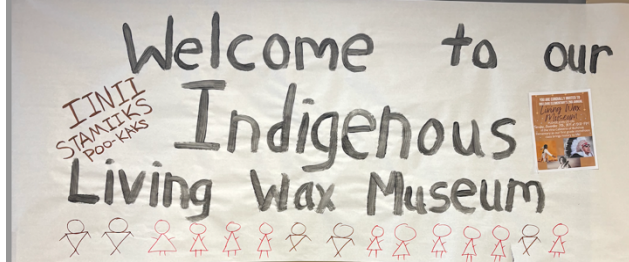 Welcome to our
IINII
STAMIIKS
POO-KAKS
Indigenous
Living Wax Museum
Living Wax
Museum